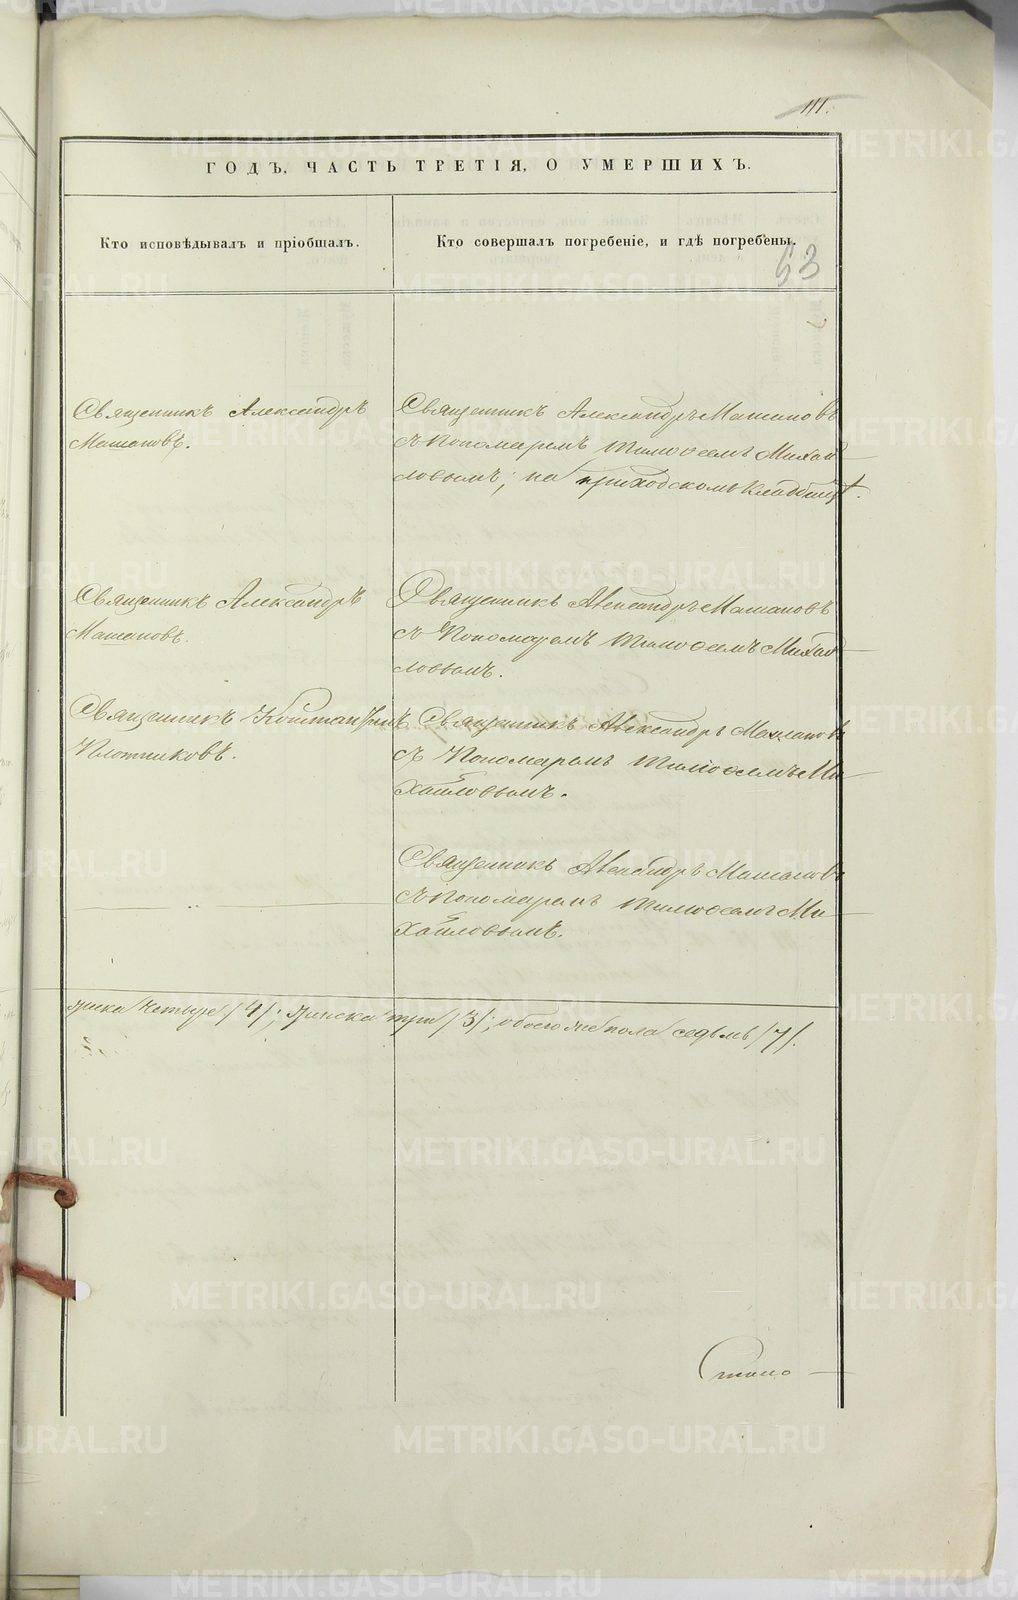 111.
ГОДЪ, ЧАСТЬ ТРЕТІЯ, О УМЕРШИХЪ.
Кто исповѣдывалъ и пріобщалъ.
Кто совершалъ погребеніе, и гдѣ погребены.
63
Священникъ Александръ
Машановъ.
Священникъ Александръ Машановъ
съ Пономаремъ Тимоѳеемъ Михай
ловымъ; на приходскомъ кладбищѣ.
Священникъ Александръ
Машановъ.
Священникъ Александръ Машановъ
съ Пономаремъ Тимоѳеемъ Михай
ловымъ.
Священникъ Константинъ
Плотниковъ.
Священникъ Александръ Машановъ
съ Пономаремъ Тимоѳеемъ Ми
хайловымъ.
Священникъ Александръ Машановъ
съ Пономаремъ Тимоѳеемъ Ми
хайловымъ.
четыре /4/; женска три /3/; обоего же пола седьмь /7/.
METRIKI.GASO-URAL.RU